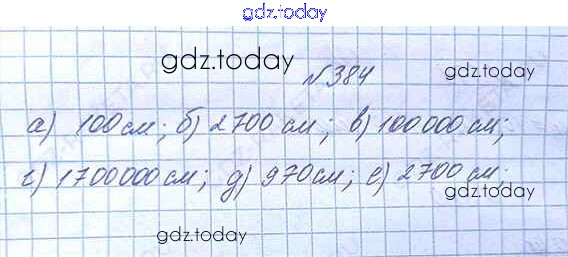 gdz.today
gdz.today
№384
а) 100 см; б) 2700 см; в) 100000 см;
г) 1700000 см; д) 970 см; е) 2700 см;
gdz.today
gdz.today